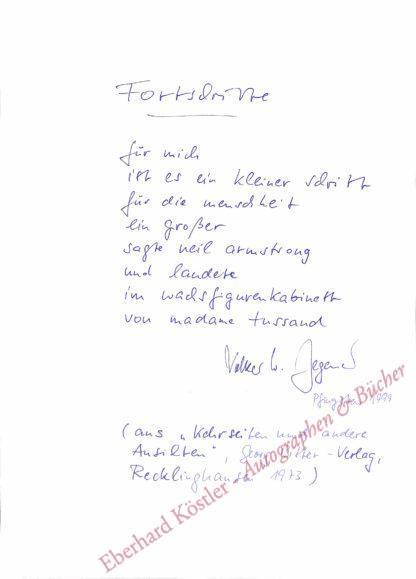 Fortschritte
für mich
ist es ein kleiner schritt
für die menschheit
ein großer
sagte neil armstrong
und landete
im wachsfigurenkabinett
von madame tussaud
Volker W. Degener
Pfingsten 1999
(aus „Kehrseiten und andere
Ansichten", Georg Bitter-Verlag,
Recklinghausen 1973)
Eberhard Köstler Autographen & Bücher